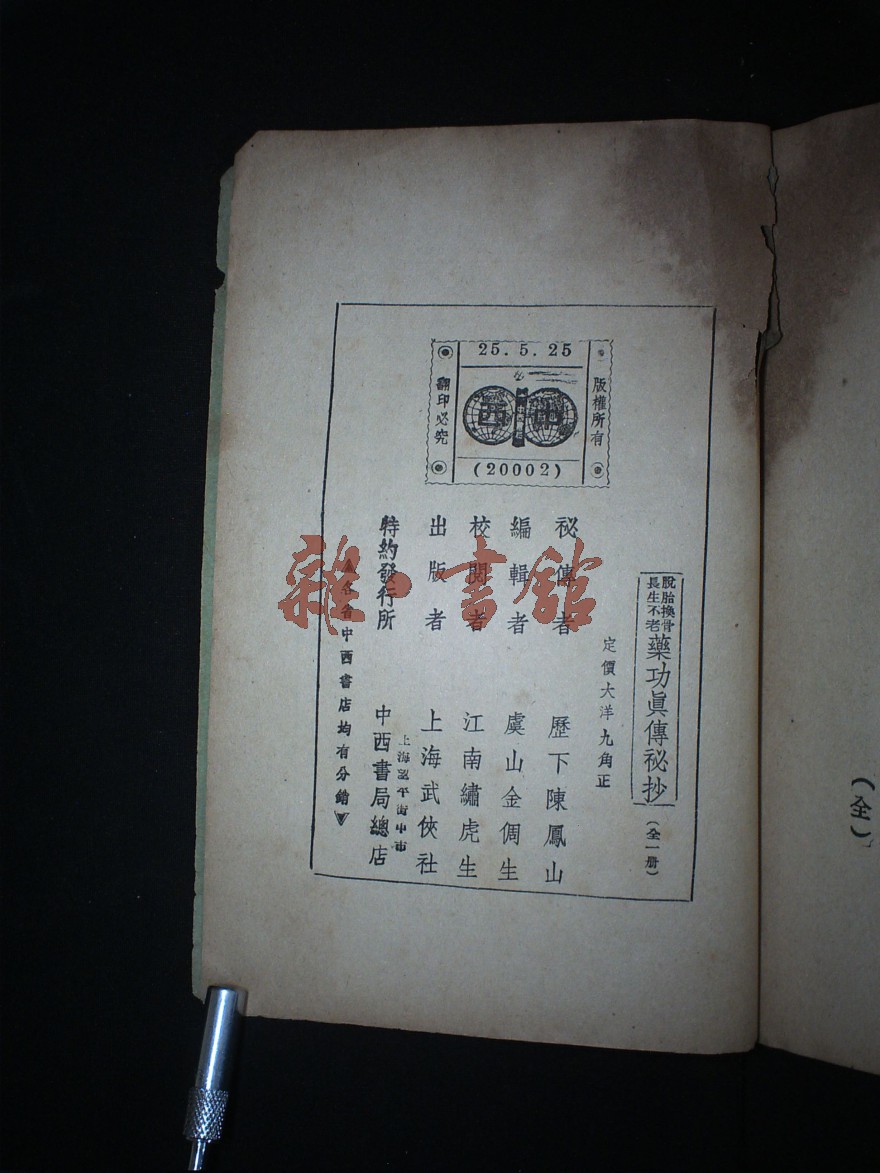 脫胎換骨
長生不老
藥功眞傳祕抄
(全一册)
定價大洋九角正
祕傳者 歷下陳鳳山
編輯者 虞山金倜生
校閱者 江南繡虎生
出版者 上海武俠社
特約發行所 上海望平街中市 中西書局總店
▲各省中西書店均有分銷▼
版權所有
25.5.25
中西
(20002)
翻印必究
(全)
雜·書館